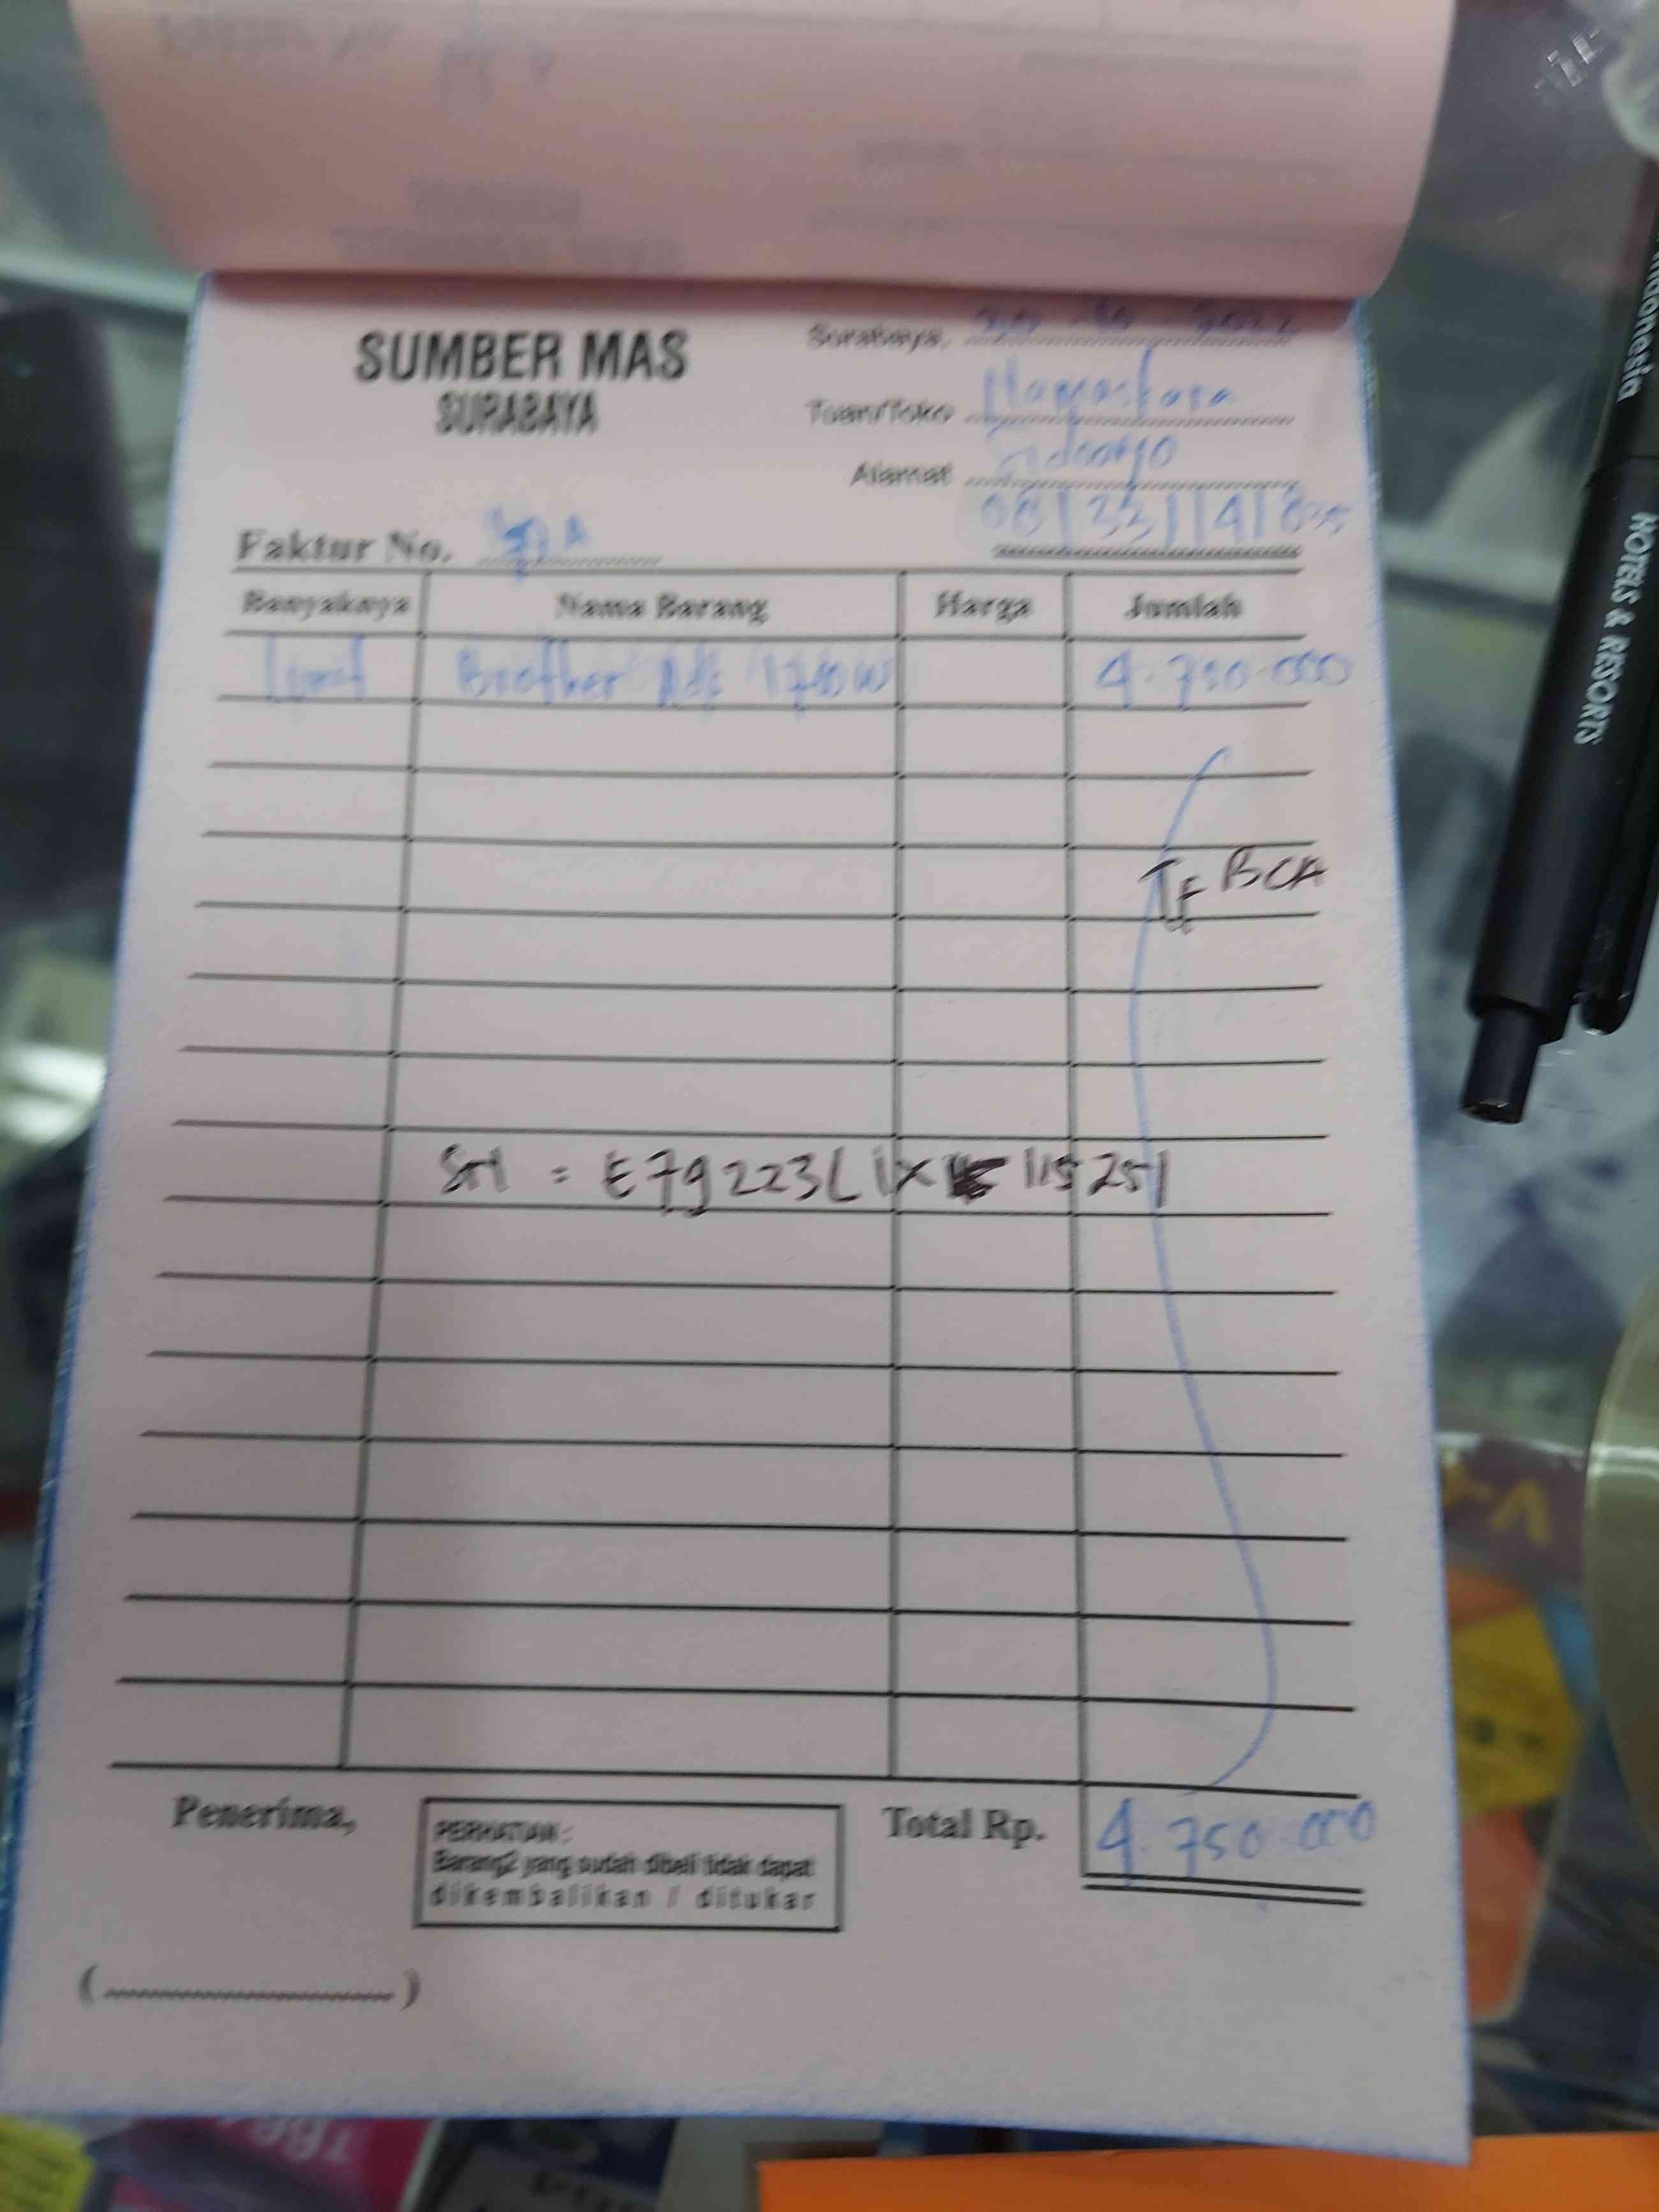 SUMBER MAS
SURABAYA
Surabaya,
Tuan/Toko
Alamat Sidoarjo
Faktur No.
Banyaknya Nama Barang Harga Jumlah
1 unit Brother Ads 1700W 4.750.000
TF BCA
SN = E79223L1X 115251
Penerima,
PERHATIAN :
Barang2 yang sudah dibeli tidak dapat
dikembalikan / ditukar
Total Rp. 4.750.000
( )
Indonesia
HOTELS & RESORTS